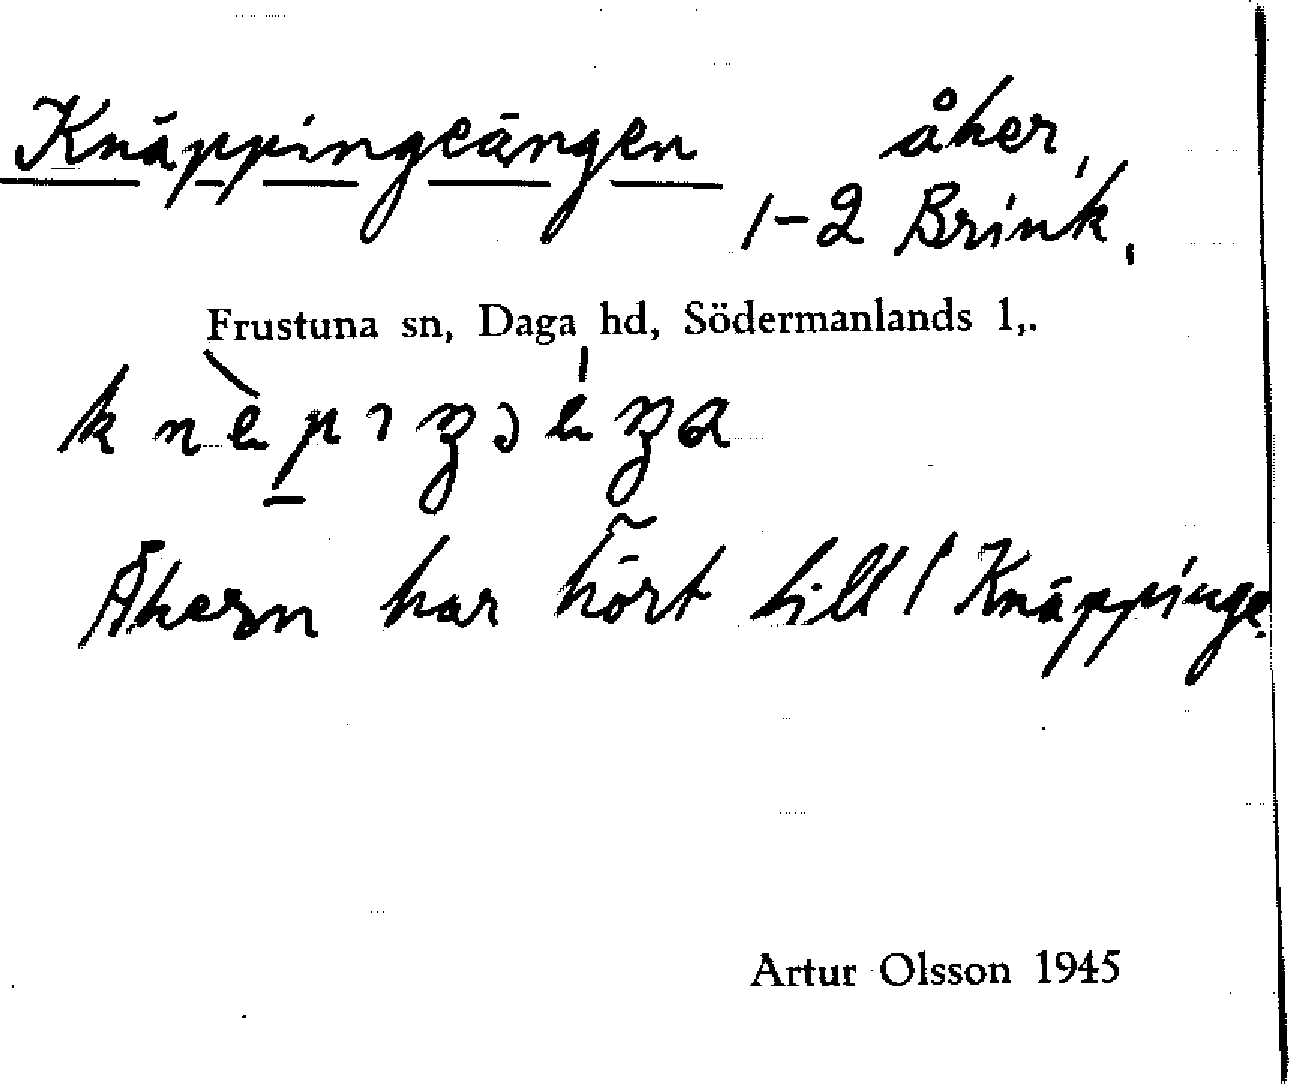 Knäppingeängen åker,
1-2 Brink,
Frustuna sn, Daga hd, Södermanlands l,.
Åkern har hört till / Knäppinge.
Artur Olsson 1945